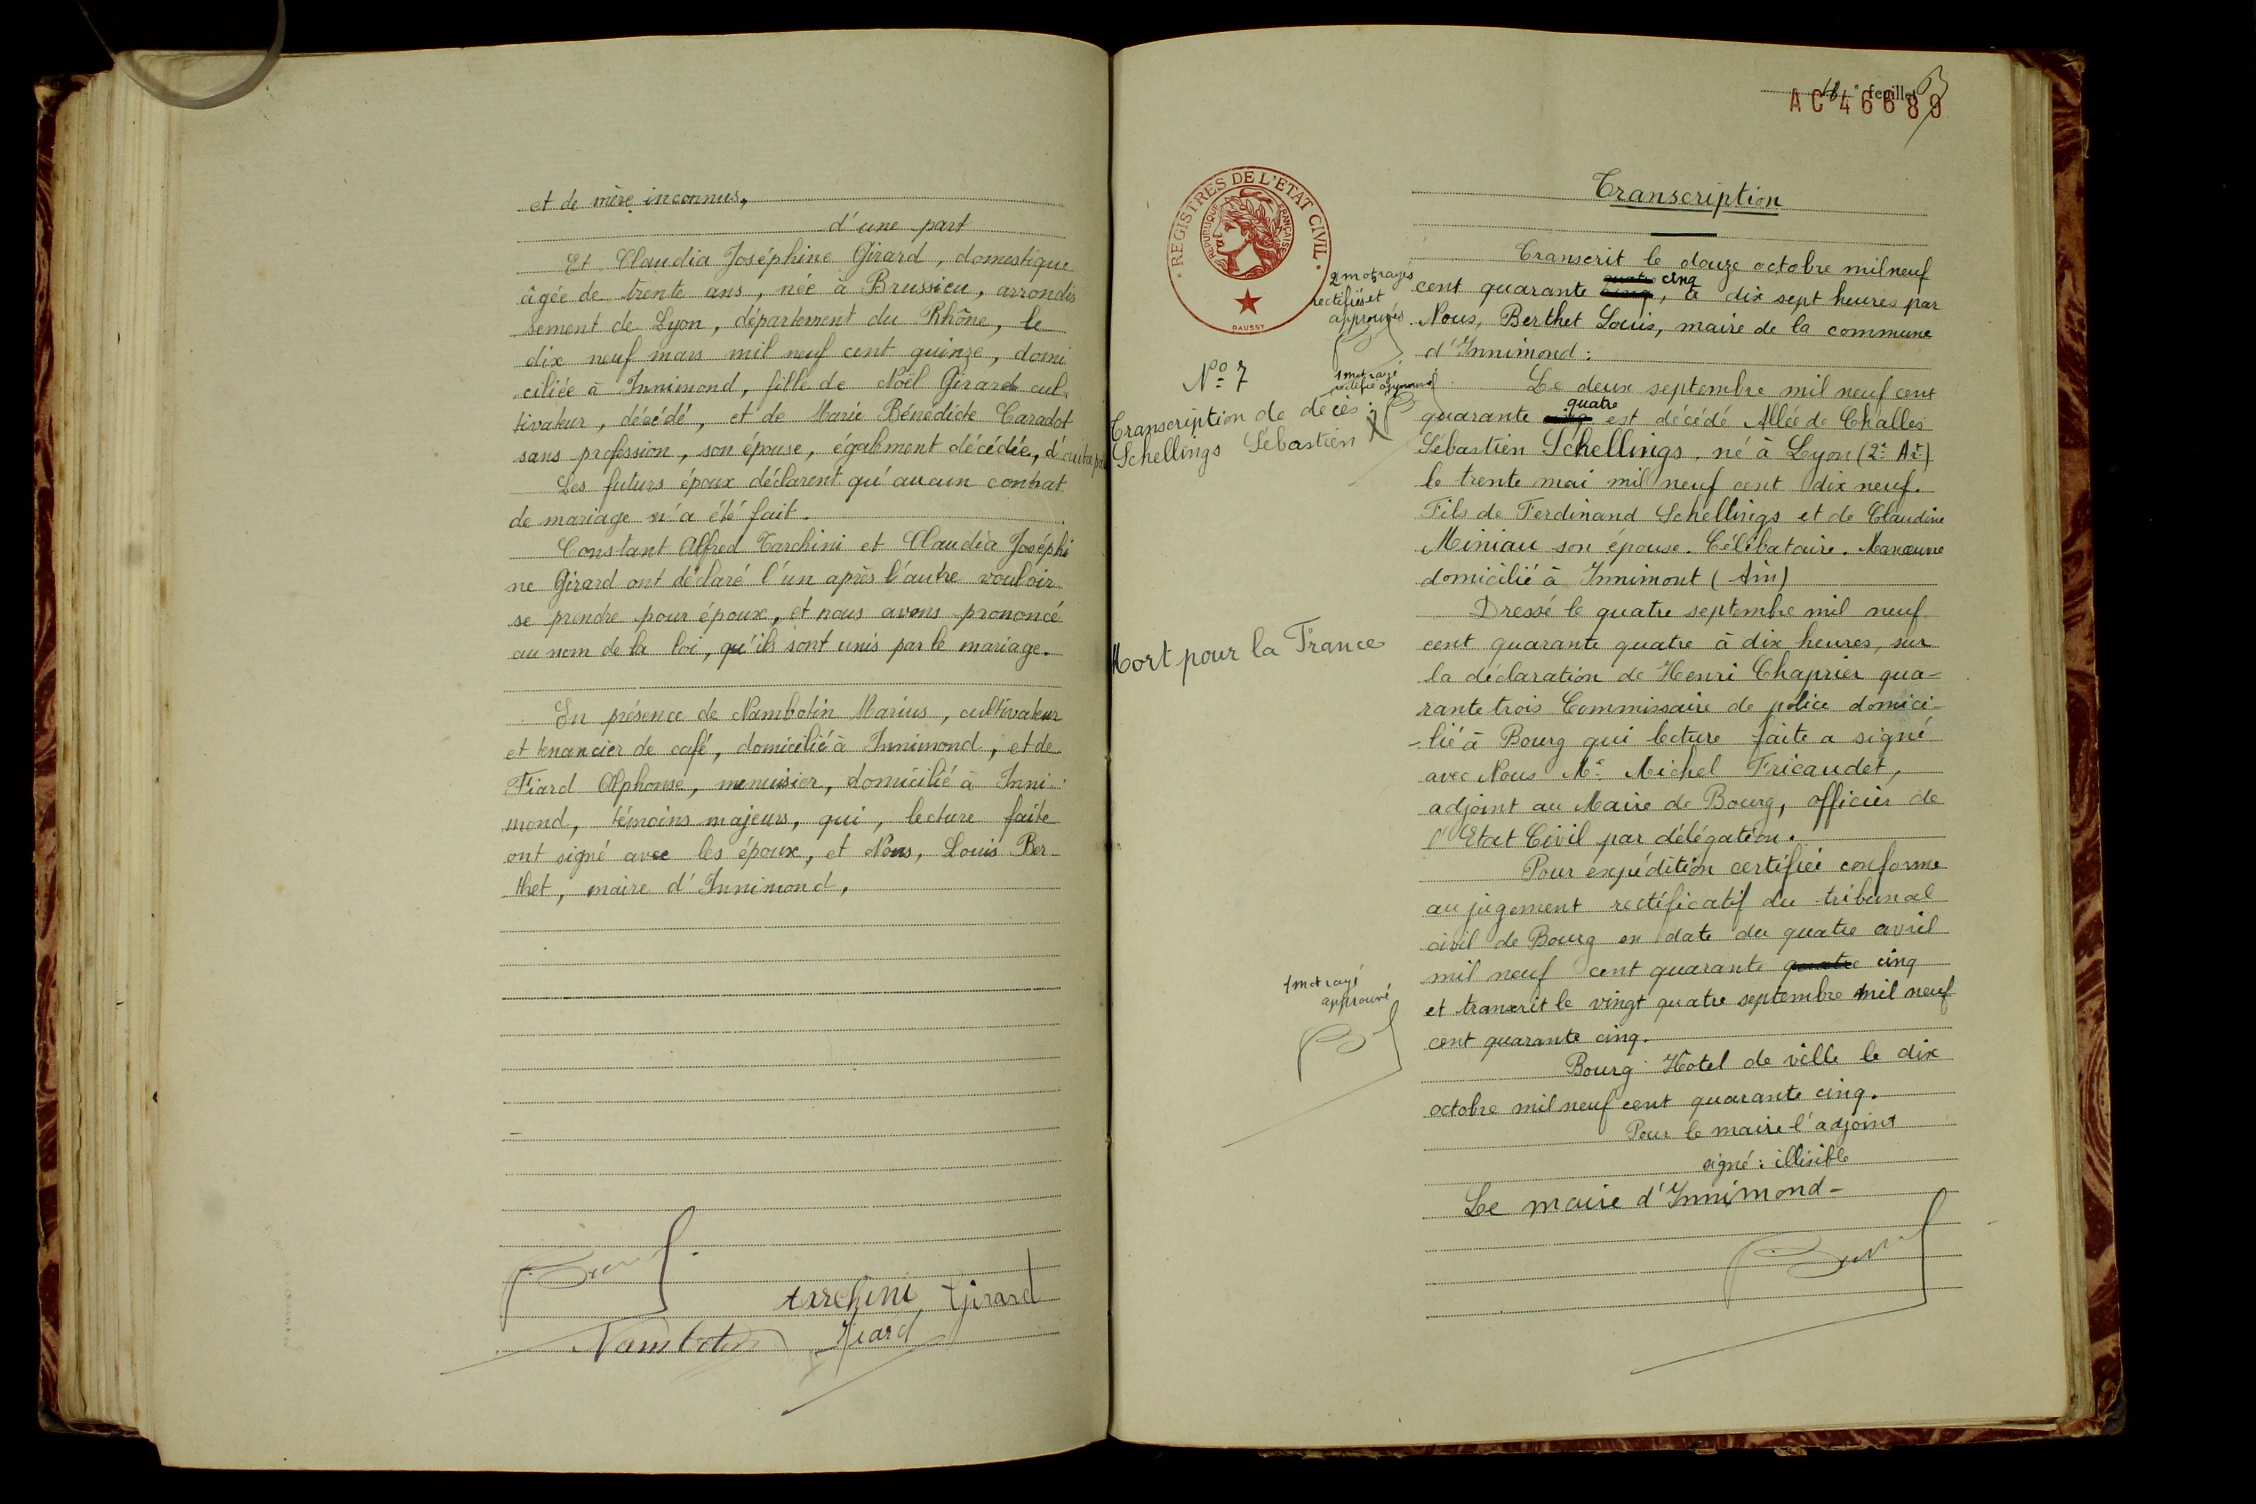 et de mère inconnus,
d'une part
Et Claudia Joséphine Girard, domestique
âgée de trente ans, née à Brussieu, arrondis
sement de Lyon, département du Rhône, le
dix neuf mars mil neuf cent quinze, domi
ciliée à Innimond, fille de Noël Girard cul
tivateur, décédé, et de Marie Bénédicte Caradot
sans profession, son épouse, également décédée, d'autre part
Les futurs époux déclarent qu'aucun contrat
de mariage n'a été fait.
Constant Alfred Tarchini et Claudia Joséphi
ne Girard ont déclaré l'un après l'autre vouloir
se prendre pour époux, et nous avons prononcé
au nom de la loi, qu'ils sont unis par le mariage.
En présence de Nambotin Marius, cultivateur
et tenancier de café, domicilié à Innimond, et de
Fiard Alphonse, menuisier, domicilié à Inni-
mond, témoins majeurs, qui, lecture faite
ont signé avec les époux, et Nous, Louis Ber-
thet, maire d'Innimond,
tarchini Girard
Nambotin Fiard
18 e feuillet
AC 46689
REGISTRES DE L'ETAT CIVIL
REPUBLIQUE FRANÇAISE
DAUSSY
2 mots rayés
rectifiés et
approuvés
No 7
1 mot rayé
rectifié approuvé
Transcription de décès:
Schellings Sébastien
Mort pour la France
1 mot rayé
approuvé
Transcription
Transcrit le douze octobre mil neuf
cent quarante quatre cinq cinq, à dix sept heures par
Nous, Berthet Louis, maire de la commune
d'Innimond:
Le deux septembre mil neuf cent
quarante cinq quatre est décédé Allée de Challes
Sébastien Schellings, né à Lyon (2e Art)
le trente mai mil neuf cent dix neuf.
Fils de Ferdinand Schellings et de Claudine
Miniau son épouse. Célibataire. Manœuvre
domicilié à Innimont (Ain)
Dressé le quatre septembre mil neuf
cent quarante quatre à dix heures, sur
la déclaration de Henri Chaprier qua-
rante trois Commissaire de police domici-
-lié à Bourg qui lecture faite a signé
avec Nous Mr Michel Fricaudet,
adjoint au Maire de Bourg, officier de
l'Etat Civil par délégation.
Pour expédition certifiée conforme
au jugement rectificatif du tribunal
civil de Bourg en date du quatre avril
mil neuf cent quarante quatre cinq
et transcrit le vingt quatre septembre mil neuf
cent quarante cinq.
Bourg Hotel de ville le dix
octobre mil neuf cent quarante cinq.
Pour le maire l'adjoint
signé: illisible
Le maire d'Innimond-